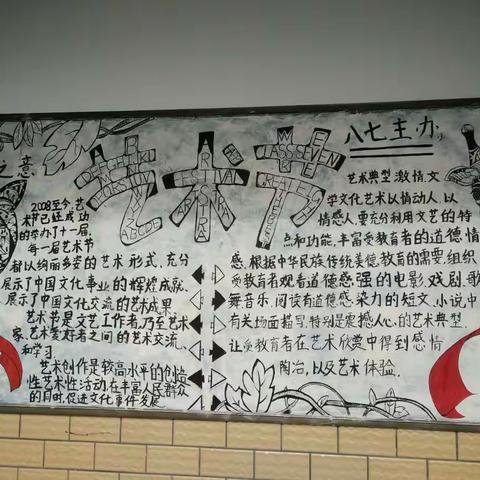 艺术节
八七主办
之意
ART FESTIVAL
CLASS SEVEN
ABCDE
2008至今,艺
术节已经成功
的举办了十一届,
每一届艺术节
都以绚丽多姿的艺术形式,充分
展示了中国文化事业的辉煌成就、
展示了中国文化交流的艺术成果
艺术节是文艺工作者,乃至艺术
家、艺术爱好者之间的艺术交流、
和学习.
艺术创作是较高水平的创造
性艺术性活动,在丰富人民群众
的同时,促进文化事件发展
艺术典型激情文
学文化艺术以情动人,以
情感人,要充分利用文艺的特
点和功能,丰富受教育者的道德情
感.根据中华民族传统美德教育的需要,组织
受教育者观看道德感强的电影、戏剧、歌
舞音乐,阅读有道德感染力的短文,小说中
有关场面描写,特别是震撼人心的艺术典型,
让受教育者在艺术欣赏中得到感情
陶冶,以及艺术体验.